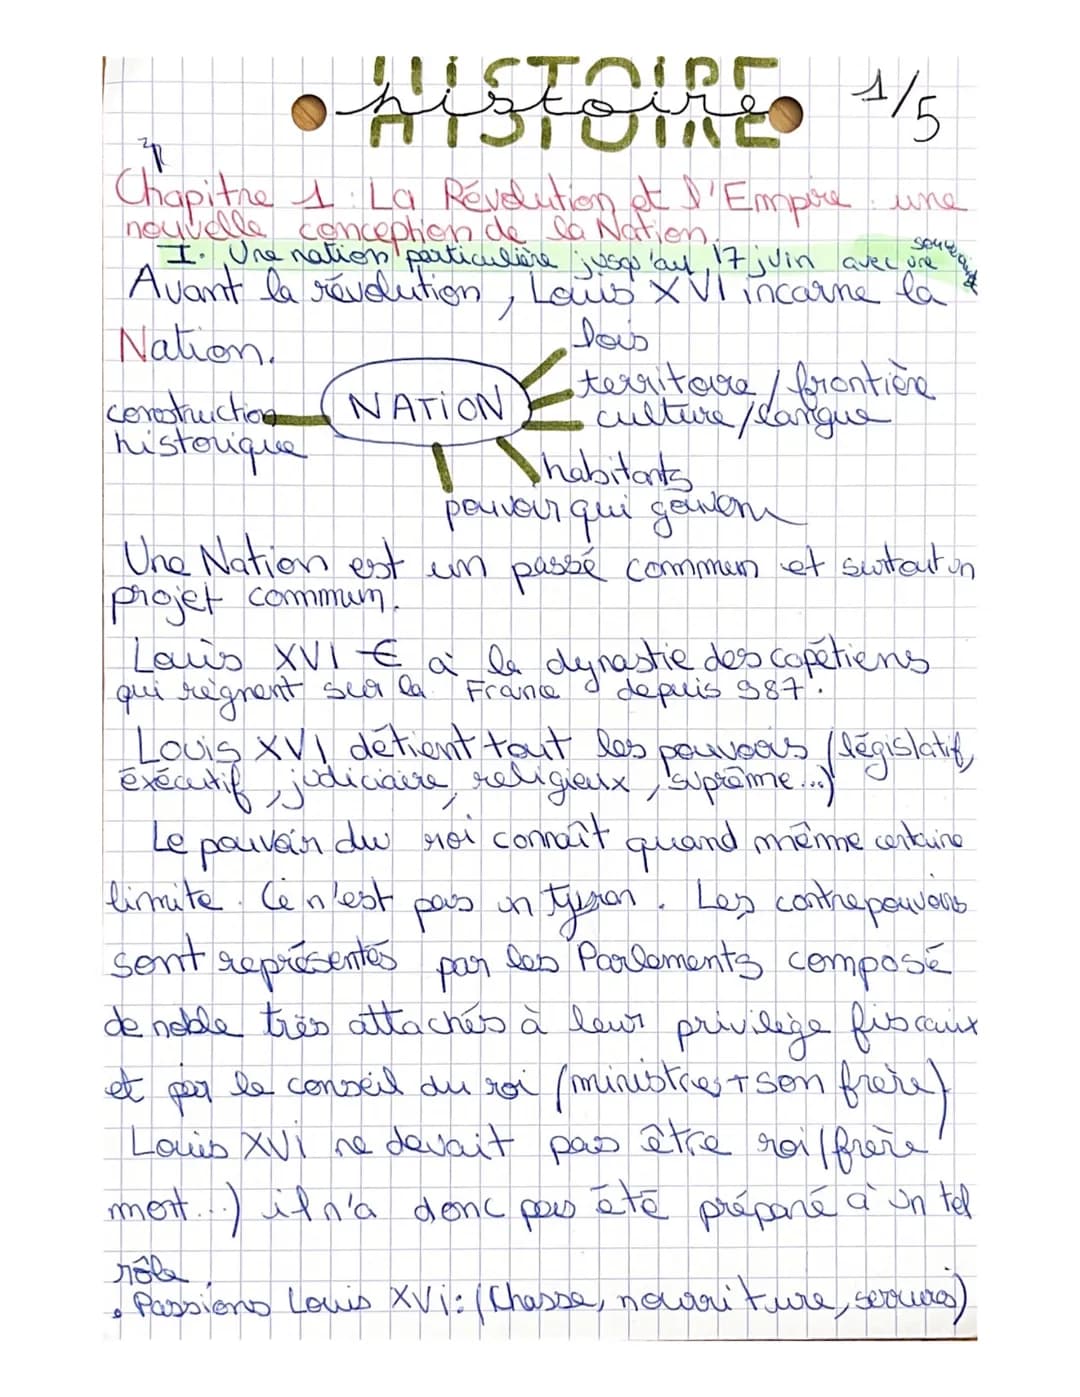 HISTOIRE
histoire
1/5
Chapitre 1 : La Révolution et l'Empire : une
nouvelle conception de la Nation.
I. Une nation particulière jusqu'au 17 juin avec une
Avant la révolution, Louis XVI incarne la
Nation.
lois
territoire / frontière
culture/langue
NATION
construction
historique
habitants
pouvoir qui gouverne
Une Nation est un passé commun et surtout un
projet commun.
Louis XVI € à la dynastie des capétiens
qui règnent sur la France depuis 987.
Louis XVI détient tout les pouvoirs (législatif,
éxécutif, judiciaire, religieux, suprême...)
Le pouvoir du roi connaît quand même certaine
limite. Ce n'est pas un tyran. Les contrepouvoirs
sont représentés par les Parlements composé
de noble très attachés à leur privilège fiscaux
et par le conseil du roi (ministres + son frère)
Louis XVI ne devait pas être roi (frère
mort...) il n'a donc pas été préparé à un tel
rôle.
• Passions Louis XVI : (Chasse, nourriture, serrures)